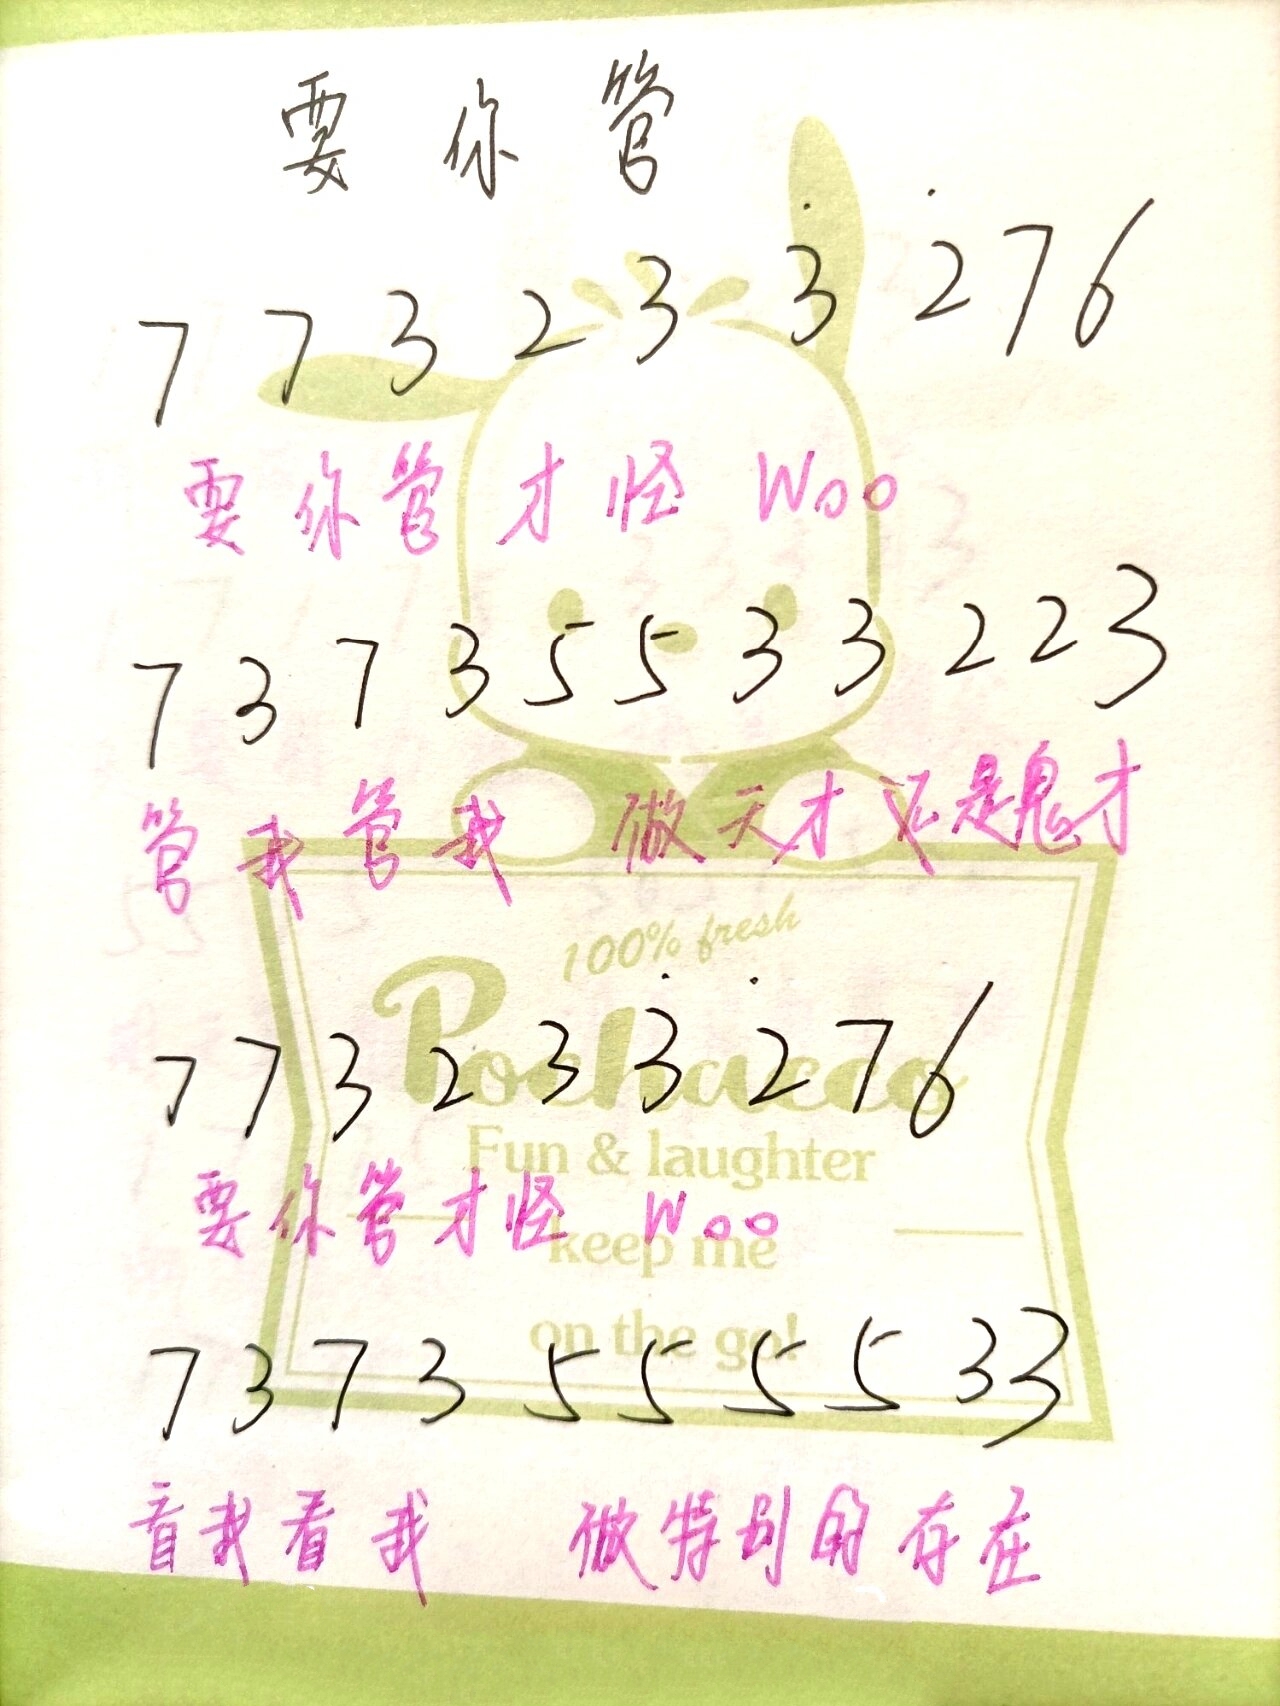 要你管
7 7 3 2 3 3̇ 2̇ 7 6
要你管才怪 Woo
7 3 7 3 5 5 3 3 2 2 3
管我管我 做天才还是鬼才
100% fresh
Pochacco
7 7 3 2 3 3̇ 2̇ 7 6
Fun & laughter
要你管才怪 Woo
keep me
on the go!
7 3 7 3 5 5 5 5 3 3
看我看我 做特别的存在